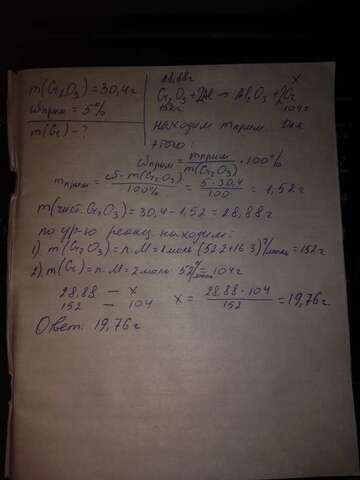 m(Cr₂O₃) = 30,4г
ωприм = 5%
m(Cr) - ?
28,88г x
Cr₂O₃ + 2Al → Al₂O₃ + 2Cr
152г 104г
находим mприм. Для
этого:
ωприм = mприм / m(Cr₂O₃) · 100%
mприм = ω · m(Cr₂O₃) / 100% = 5 · 30,4 / 100 = 1,52г
m(чист. Cr₂O₃) = 30,4 - 1,52 = 28,88г
по ур-ю реакц находим:
1) m(Cr₂O₃) = n·M = 1моль·(52·2+16·3)г/моль = 152г
2) m(Cr) = n·M = 2моль·52г/моль = 104г
28,88 — x
152 — 104
x = 28,88 · 104 / 152 = 19,76г
Ответ: 19,76г